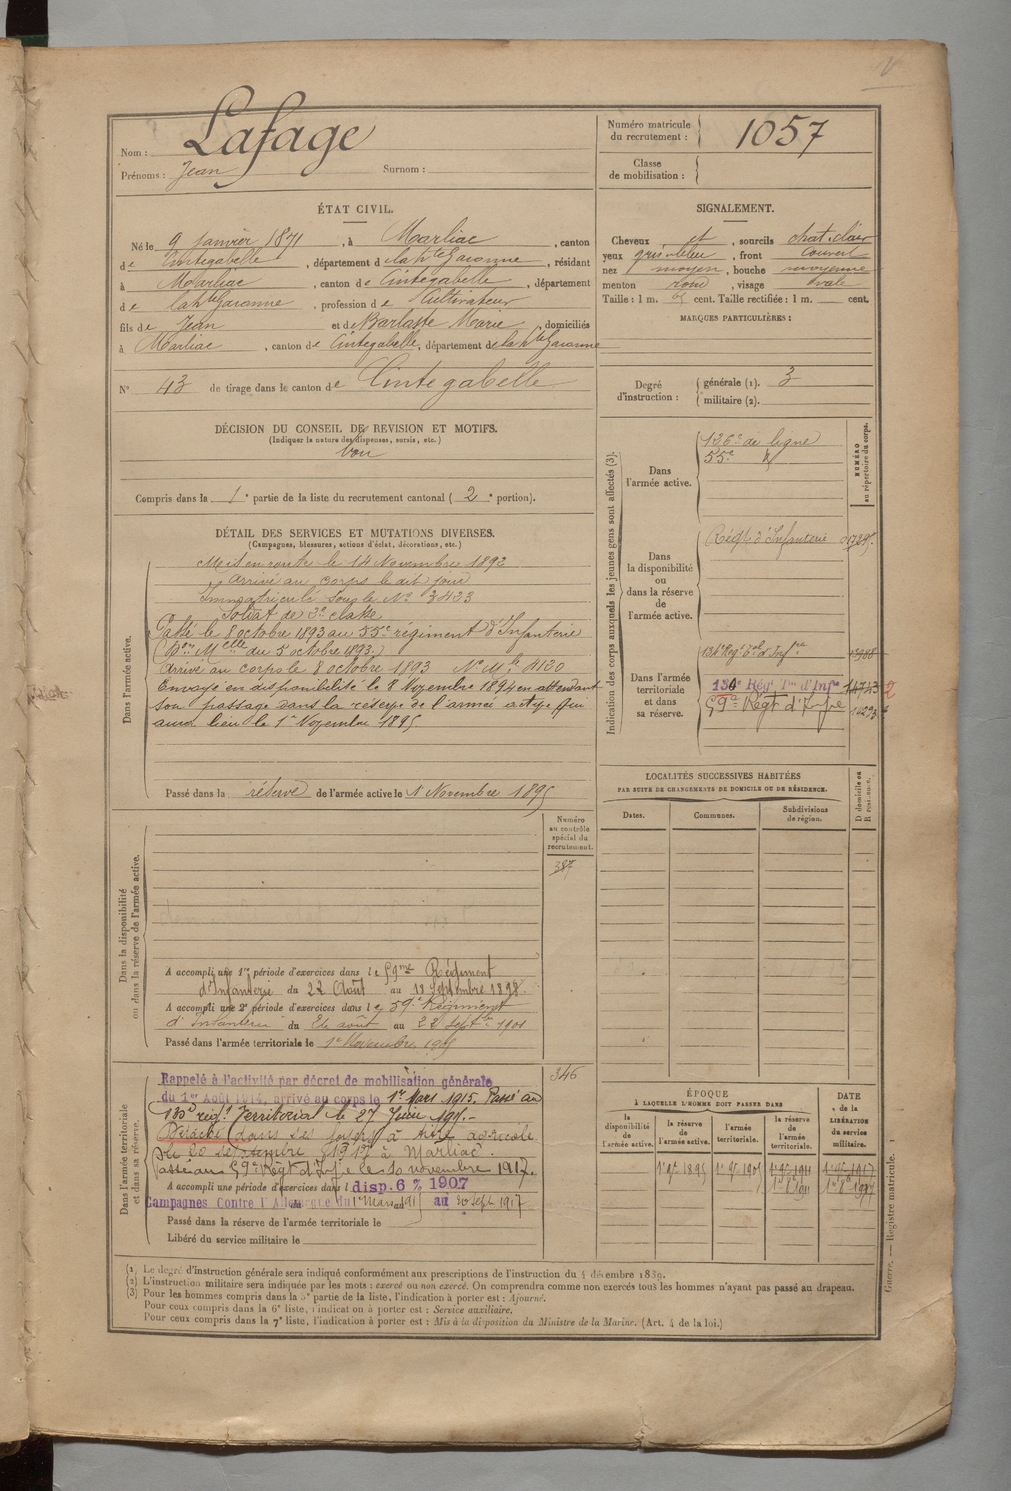 Nom : Lafage
Prénoms : Jean Surnom :
Numéro matricule du recrutement : 1057
Classe de mobilisation :
ÉTAT CIVIL.
Né le 9 janvier 1871, à Marliac, canton
de Cintegabelle, département de la Hte Garonne, résidant
à Marliac, canton de Cintegabelle, département
de la Hte Garonne, profession de Cultivateur
fils de Jean et de Barlaste Marie, domiciliés
à Marliac, canton de Cintegabelle, département de la Hte Garonne
No 43 de tirage dans le canton de Cintegabelle
SIGNALEMENT.
Cheveux et, sourcils chat. clair
yeux gris bleu, front couvert
nez moyen, bouche moyenne
menton rond, visage ovale
Taille : 1 m. cent. Taille rectifiée : 1 m. cent.
MARQUES PARTICULIÈRES :
Degré d'instruction : générale (1). 3
militaire (2).
DÉCISION DU CONSEIL DE REVISION ET MOTIFS.
(Indiquer la nature des dispenses, sursis, etc.)
bon
Compris dans la 1e partie de la liste du recrutement cantonal (2e portion).
DÉTAIL DES SERVICES ET MUTATIONS DIVERSES.
(Campagnes, blessures, actions d'éclat, décorations, etc.)
Dans l'armée active.
Mis en route le 14 Novembre 1892
arrivé au corps le dit jour
Immatriculé sous le No 3433
Soldat de 2e classe
Passé le 8 octobre 1893 au 55e régiment d'Infanterie
(Don Melle du 5 octobre 1893.)
Arrivé au corps le 8 octobre 1893 No Mle 4130
Envoyé en disponibilité le 8 Novembre 1894 en attendant
son passage dans la réserve de l'armée active qui
aura lieu le 1er Novembre 1895
Passé dans la réserve de l'armée active le 1 Novembre 1895
Indication des corps auxquels les jeunes gens sont affectés (3).
NUMÉRO au répertoire du corps.
Dans l'armée active.
136e de ligne
55e
Dans la disponibilité ou dans la réserve de l'armée active.
Régt d'Infanterie
Dans l'armée territoriale et dans sa réserve.
136e Régt
130e Rég. Ter. d'Infie 14743
59e Régt d'Infie
LOCALITÉS SUCCESSIVES HABITÉES
PAR SUITE DE CHANGEMENTS DE DOMICILE OU DE RÉSIDENCE.
Dates. Communes. Subdivisions de région. D domicile ou R résidence.
Dans la disponibilité ou dans la réserve de l'armée active.
Numéro au contrôle spécial du recrutement.
387
A accompli une 1re période d'exercices dans le 59me Régiment
d'Infanterie du 22 Août au 18 Septembre 1898
A accompli une 2e période d'exercices dans le 59e Régiment
d'Infanterie du 26 août au 22 Septbre 1901
Passé dans l'armée territoriale le 1er Novembre 1905
Dans l'armée territoriale et dans sa réserve.
346
Rappelé à l'activité par décret de mobilisation générale
du 1er Août 1914, arrivé au corps le 1er Mars 1915. Passé au
130e régt Territorial le 27 Juin 1915.
Détaché dans ses foyers à titre agricole
le 20 Septembre 1917 à Marliac.
Passé au 59e Régt d'Infie le 10 novembre 1917.
A accompli une période d'exercices dans l disp. 6 % 1907
Campagnes Contre l'Allemagne du 1er Mars 1915 au 20 Sept 1917
Passé dans la réserve de l'armée territoriale le
Libéré du service militaire le
ÉPOQUE
À LAQUELLE L'HOMME DOIT PASSER DANS
DATE de la LIBÉRATION du service militaire.
la disponibilité de l'armée active. la réserve de l'armée active. l'armée territoriale. la réserve de l'armée territoriale.
1er 9bre 1895 1er 9bre 1905 1er 9bre 1911 1er 9bre 1917
1er 8bre 1911 1er 8bre 1917
(1) Le degré d'instruction générale sera indiqué conformément aux prescriptions de l'instruction du 4 décembre 1889.
(2) L'instruction militaire sera indiquée par les mots : exercé ou non exercé. On comprendra comme non exercés tous les hommes n'ayant pas passé au drapeau.
(3) Pour les hommes compris dans la 5e partie de la liste, l'indication à porter est : Ajourné.
Pour ceux compris dans la 6e liste, l'indication à porter est : Service auxiliaire.
Pour ceux compris dans la 7e liste, l'indication à porter est : Mis à la disposition du Ministre de la Marine. (Art. 4 de la loi.)
Guerre. — Registre matricule.